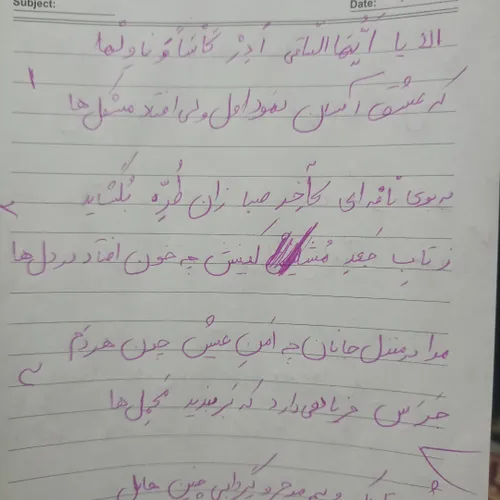 Subject:
Date:
الا یا اَیُّها السّاقی اَدِرْ کَأساً وَ ناوِلْها
۱
که عشق آسان نمود اول ولی افتاد مشکل‌ها
به بوی نافه‌ای کآخِر صبا زان طُرّه بُگشاید
۲
ز تابِ جَعدِ مُشکینش چه خون افتاد در دل‌ها
مرا در منزل جانان چه اَمنِ عیش چون هردَم
۳
جَرَس فریاد می‌دارد که بَربندید مَحمِل‌ها
شب تاریک و بیم موج و گردابی چنین هایل